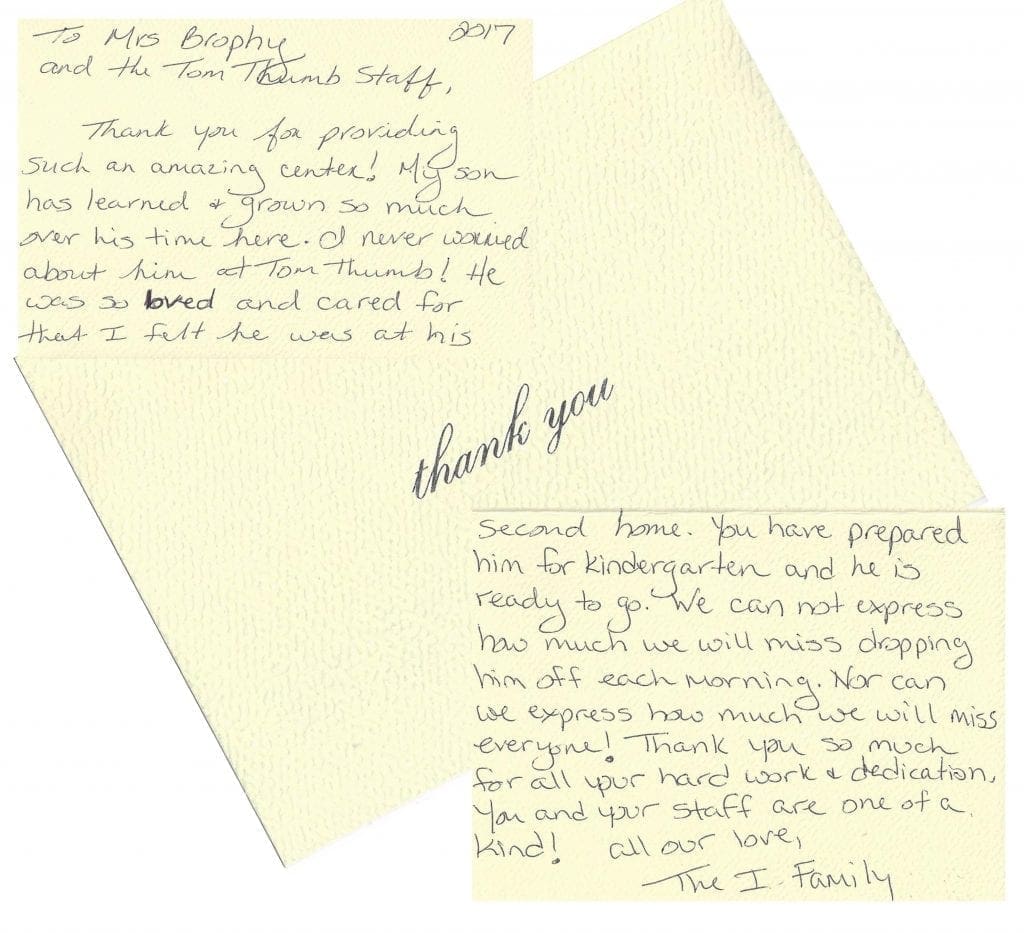 To Mrs Brophy 2017
and the Tom Thumb Staff,
Thank you for providing
such an amazing center! My son
has learned & grown so much
over his time here. I never worried
about him at Tom Thumb! He
was so loved and cared for
that I felt he was at his
thank you
second home. You have prepared
him for kindergarten and he is
ready to go. We can not express
how much we will miss dropping
him off each morning. Nor can
we express how much we will miss
everyone! Thank you so much
for all your hard work & dedication.
You and your staff are one of a
kind! all our love,
The I. Family